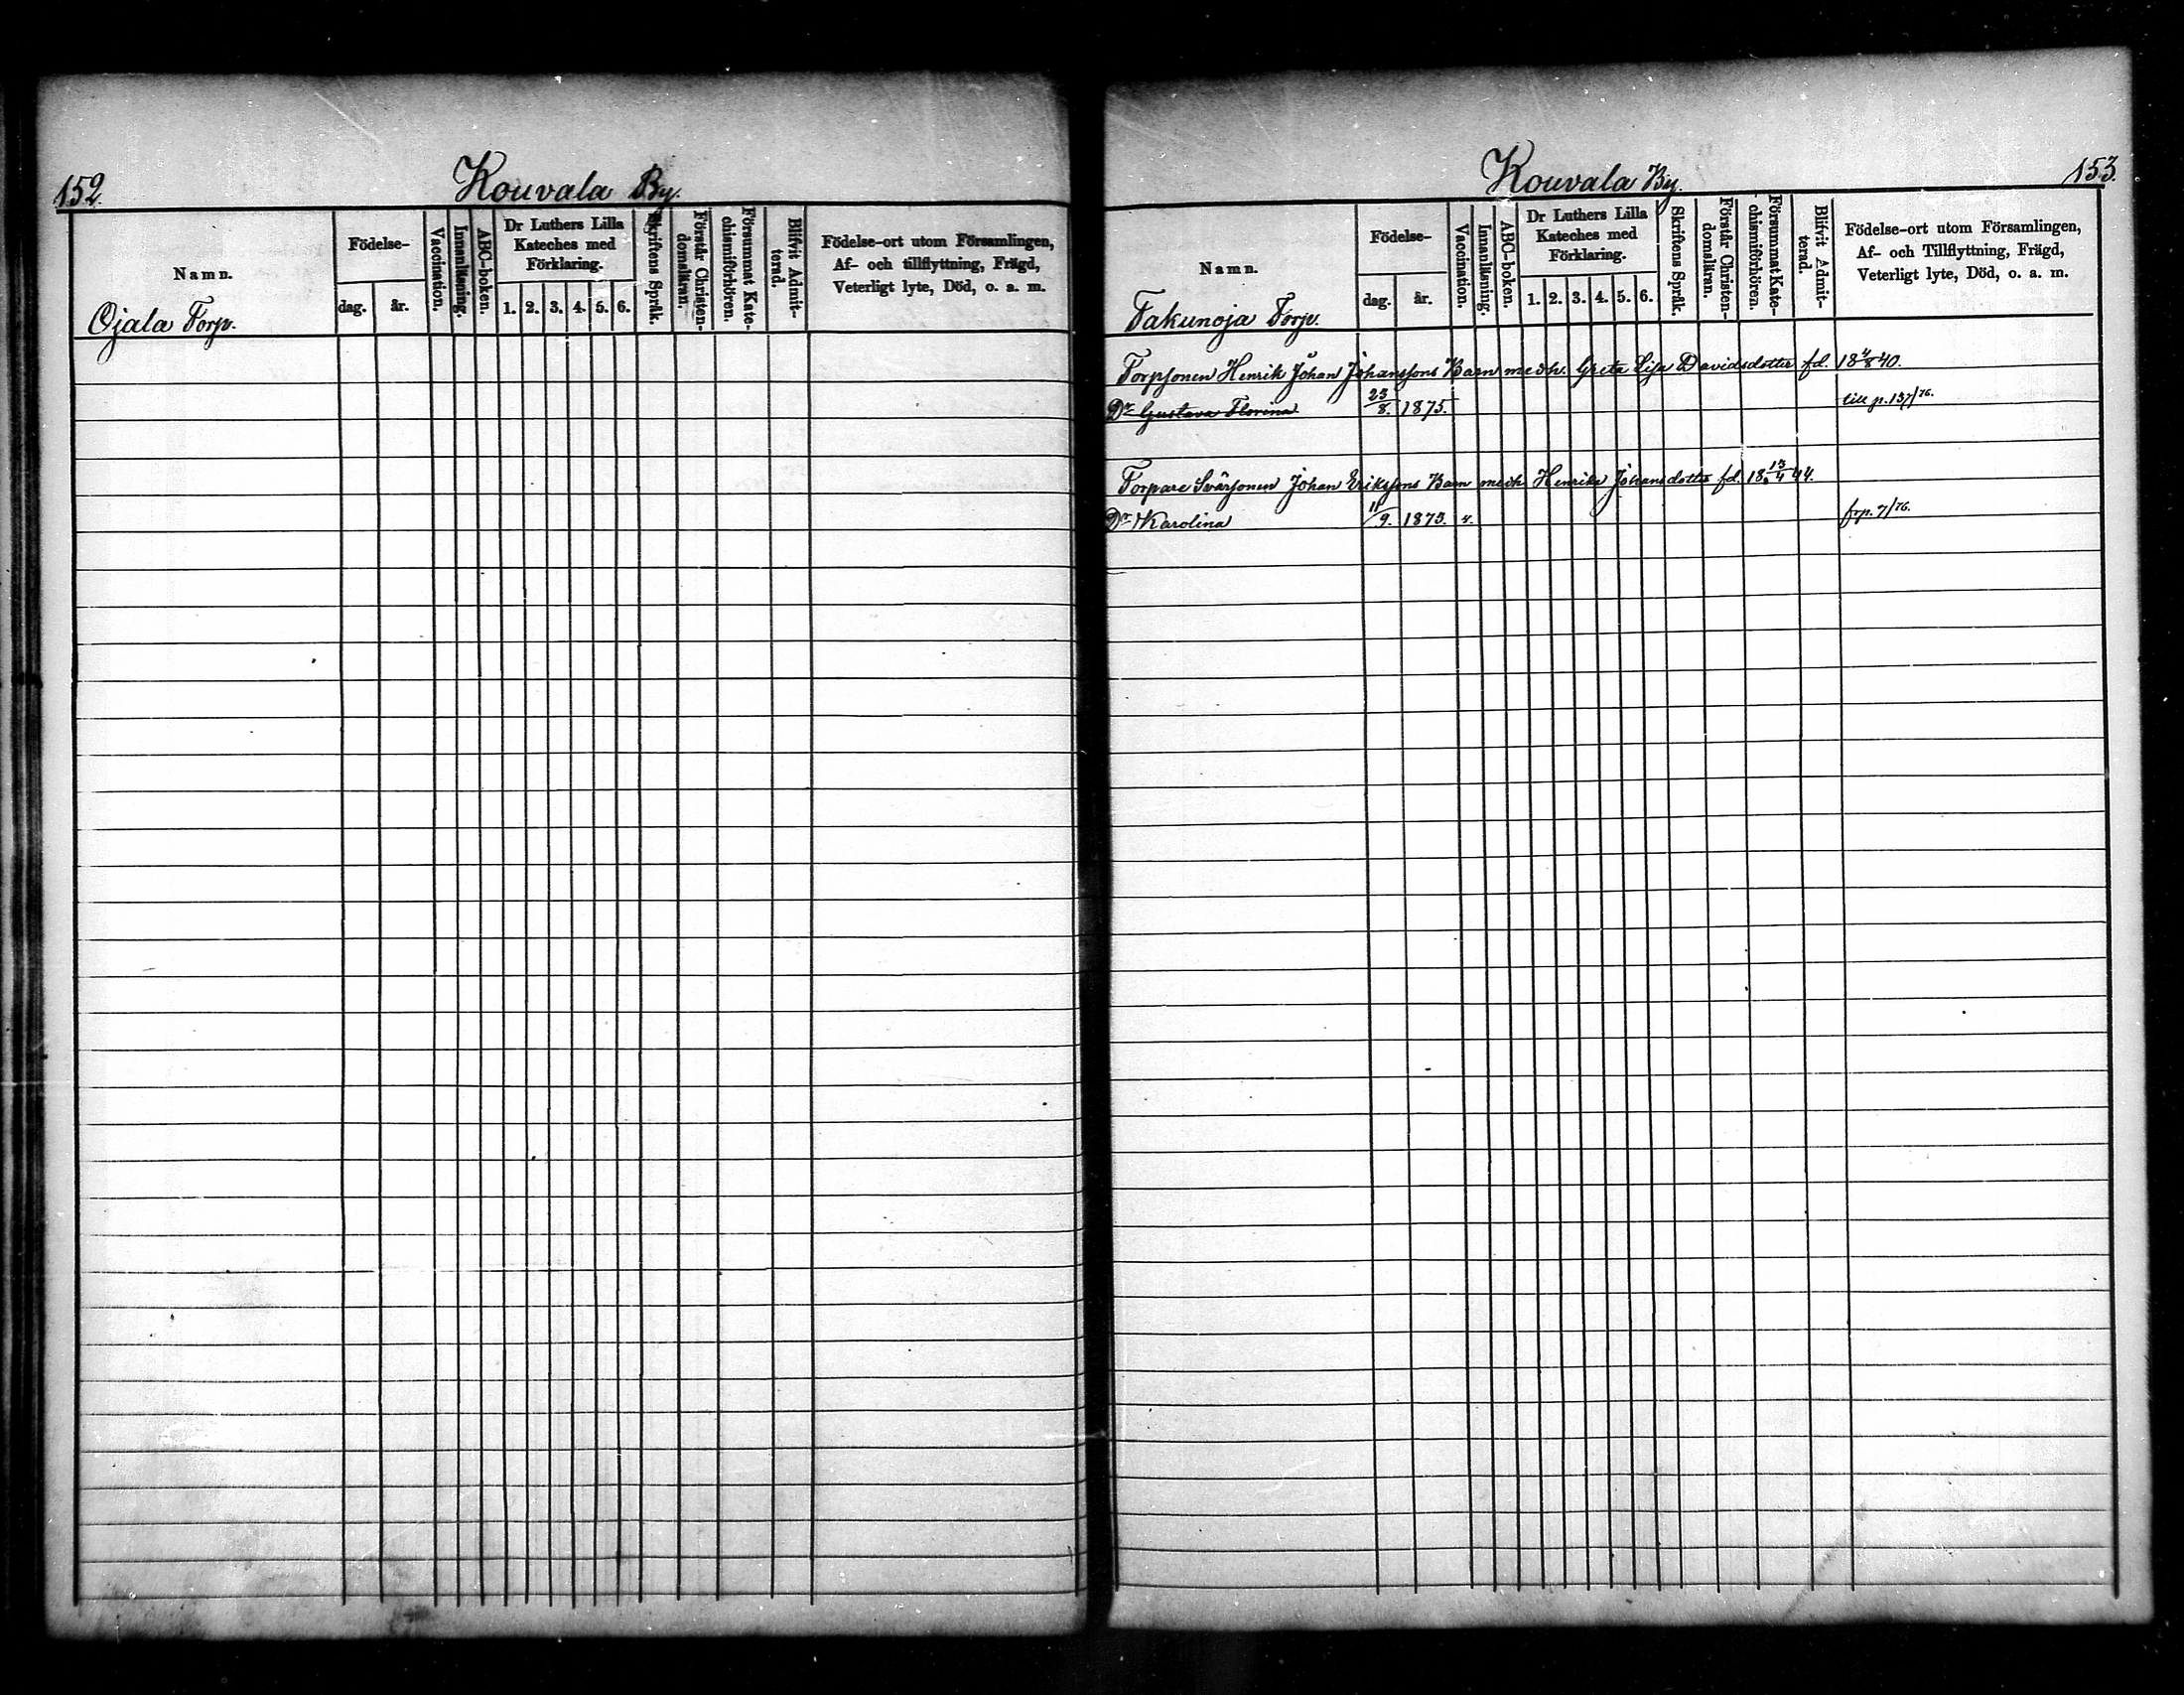 152.
Kouvala By.
Namn.
Födelse-
dag.
år.
Vaccination.
Innanläsning.
ABC-boken.
Dr Luthers Lilla
Kateches med
Förklaring.
1. 2. 3. 4. 5. 6.
Skriftens Språk.
Förstår Christen-
domsläran.
Försummat Kate-
chismiförhören.
Blifvit Admit-
terad.
Födelse-ort utom Församlingen,
Af- och tillflyttning, Frägd,
Veterligt lyte, Död, o. a. m.
Ojala Torp.
153.
Kouvala By.
Namn.
Födelse-
dag.
år.
Vaccination.
Innanläsning.
ABC-boken.
Dr Luthers Lilla
Kateches med
Förklaring.
1. 2. 3. 4. 5. 6.
Skriftens Språk.
Förstår Christen-
domsläran.
Försummat Kate-
chismiförhören.
Blifvit Admit-
terad.
Födelse-ort utom Församlingen,
Af- och Tillflyttning, Frägd,
Veterligt lyte, Död, o. a. m.
Takunoja Torp.
Torpsonen Henrik Johan Johanssons Barn med h. Greta Lisa Davidsdotter fd. 18 4/8 40.
Dr Gustava Florina 23/8. 1875. till p. 137/76.
Torpare Svärsonen Johan Erikssons Barn med h. Henrika Johansdotter fd. 18 13/4 44.
Dr Karolina 11/9. 1875. v. frp. 7/76.